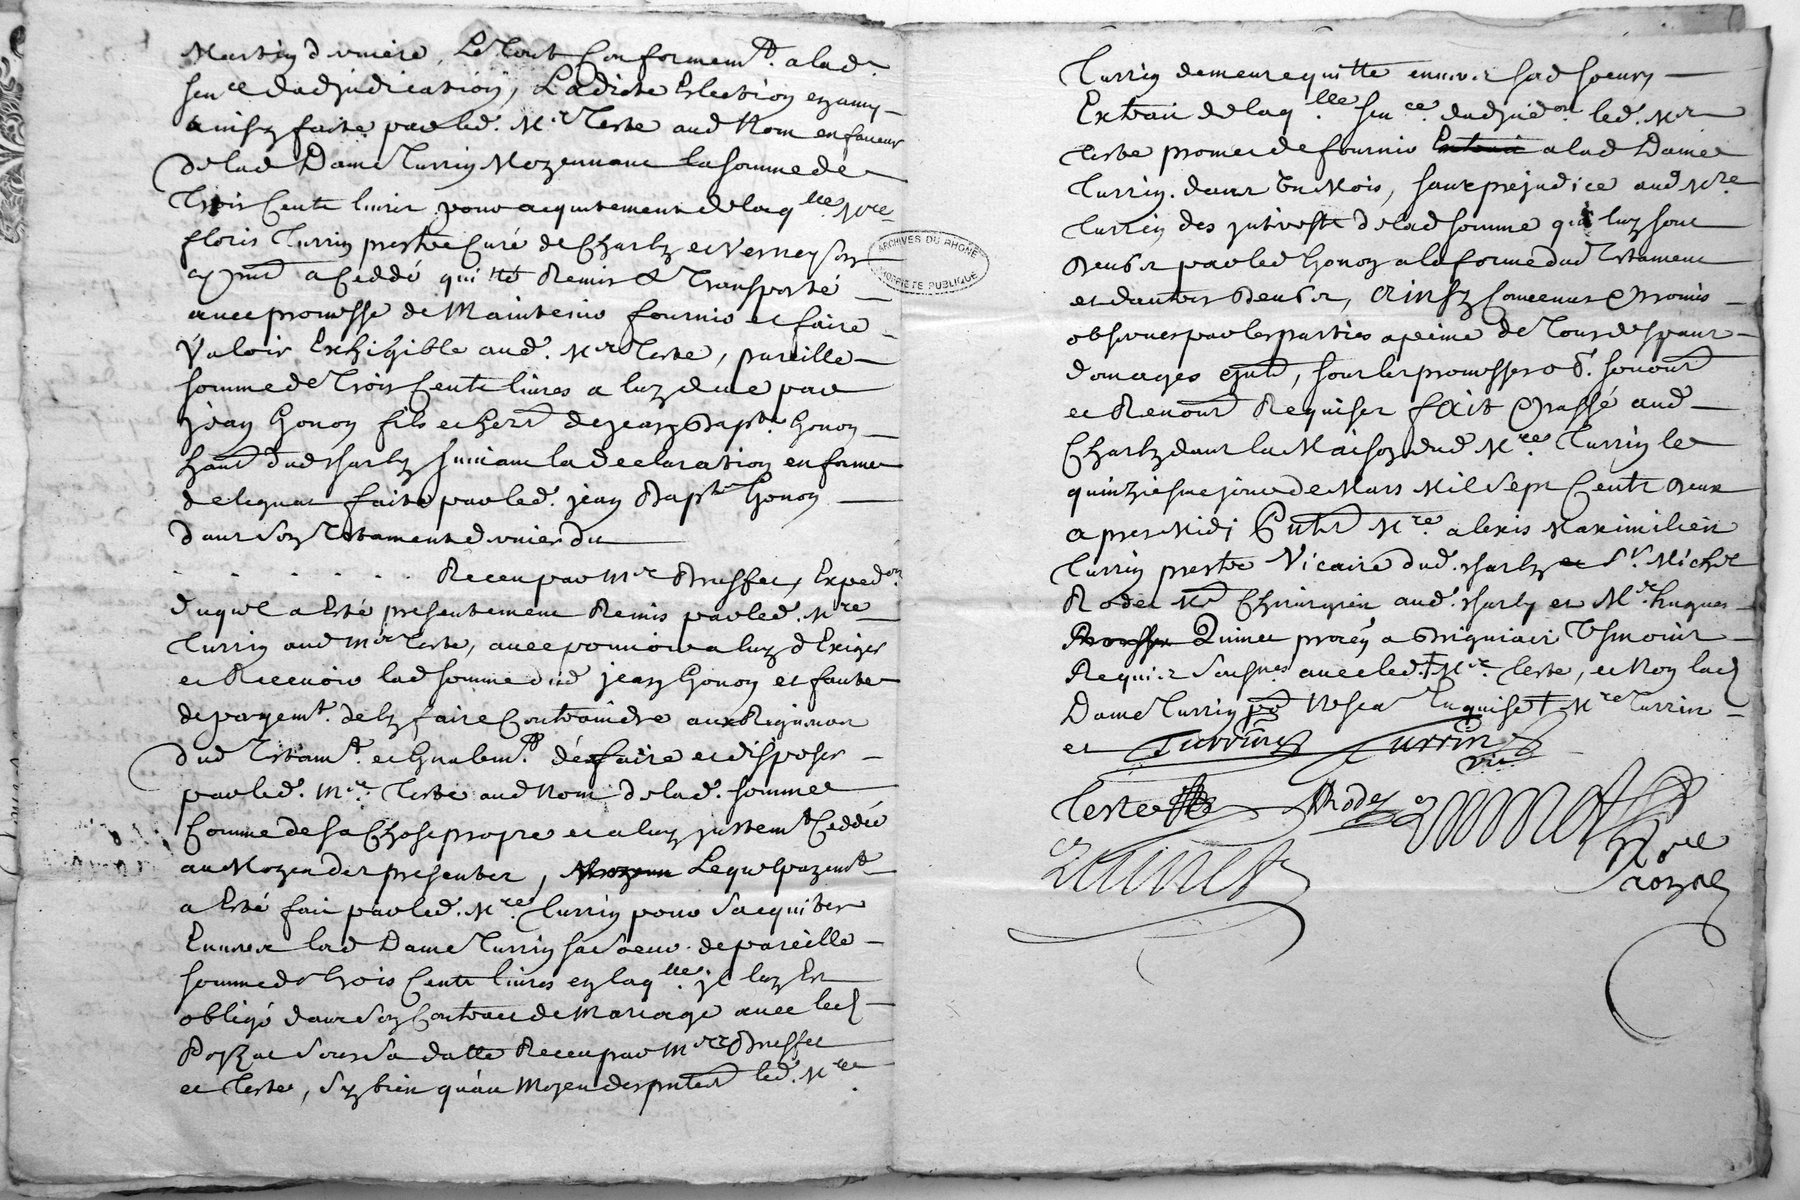 Martin derniere, Le Tout Conformemt. a lad.
Sence dadjudication, Ladicte Eslection en amy
ainsy faite par led. Mre Teste aud Nom en faveur
de lad Dame Turrin Moyennant la somme de
Trois Cents livres pour acquitement de laqlle Mre
floris Turrin prestre Curé de Charly et Verneyson
a Ceddé quitté Remis & Transporté
avec promesse de Maintenir fournir et faire
Valoir Exhigible aud. Mre Teste, pareille
somme de Trois Cents livres a luy deue par
jean Gonon fils et hert de jean Bapte Gonon
dud Charly suivant la declaration en forme
de legat faite par led. jean Bapte Gonon
dans son Testament dernier du
Receu par Mre Bresset, Expedon
duquel a Esté presentement Remis par led. Mre
Turrin aud Mre Teste, avec pouvoir a luy d'Exiger
et Recevoir lad somme dud jean Gonon et faute
de payemt. de ly faire Contraindre aux Rigueurs
dud Testamt. et Gnalemt. de faire et disposer
par led. Mre Teste aud Nom de lad. somme
Comme de sa Chose propre et a luy justemt Ceddée
au Moyen des presentes, Lequel payemt
a Esté fait par led. Mre Turrin pour s'acquiter
Envers lad Dame Turrin sa soeur de pareille
somme de trois Cents livres en laqlle. il luy Est
obligé dans son Contract de Mariage avec led
sous sa datte Receu par Mres Bresset
et Teste, sy bien qu'au Moyen des pntes led. Mre
Turrin demeure quitte envers sad soeur,
Extrait de laqlle sence dadjudon led. Mre
Teste promet de fournir a lad Dame
Turrin dans un Mois, sans prejudice aud Mre
Turrin des interests de lad somme qui luy sont
deubs par led Gonon a la forme dud Testament
et dautres deubs, Ainsy Convenus & Promis
observer par les parties a peine de Tous despans
domages, sous les promesses
et Renont Requises fait & Passé aud
Charly dans la Maison dud Mre Turrin le
quinziesme jour de Mars Mil Sept Cents deux
apres Midi Mre alexis Maximilien
Turrin prestre Vicaire dud. Charly et Sr. Michel
Rodet Me Chirurgien aud. Charly et Mre hugues
Quinet a Brignais Tesmoins
Requis Sousnes avec led Mre Teste, et Non lad
Dame Turrin Enquise Mre Turrin
et Turrin Turrin
vic
Teste Rodet Quinet
Quinet
Nore
Royal
ARCHIVES DU RHONE
PROPRIETE PUBLIQUE